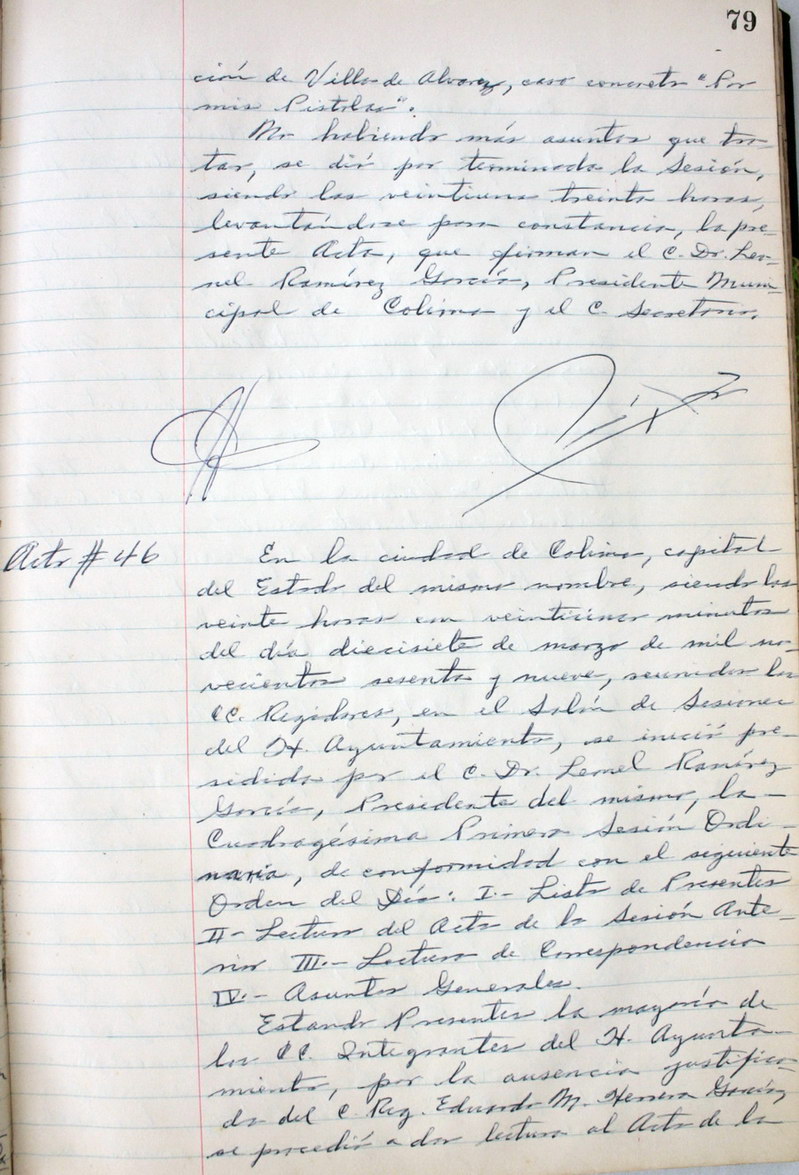 79
ción de Villa de Alvarez, caso concreto "Por
mis Pistolas".
No habiendo más asuntos que tra-
tar, se dió por terminada la Sesión,
siendo las veintiuna treinta horas,
levantándose para constancia, la pre-
sente Acta, que firman el C. Dr. Leo-
nel Ramírez García, Presidente Muni-
cipal de Colima y el C. Secretario.
Acta # 46
En la ciudad de Colima, capital
del Estado del mismo nombre, siendo las
veinte horas con veinticinco minutos
del día diecisiete de marzo de mil no-
vecientos sesenta y nueve, reunidos los
CC. Regidores, en el Salón de Sesiones
del H. Ayuntamiento, se inició pre-
sidida por el C. Dr. Leonel Ramírez
García, Presidente del mismo, la -
Cuadragésima Primera Sesión Ordi-
naria, de conformidad con el siguiente
Orden del Día: I.- Lista de Presentes
II- Lectura del Acta de la Sesión Ante-
rior III.- Lectura de Correspondencia
IV.- Asuntos Generales.
Estando Presentes la mayoría de
los CC. Integrantes del H. Ayunta-
miento, por la ausencia justifica-
da del C. Reg. Eduardo M. Herrera García,
se procedió a dar lectura al Acta de la